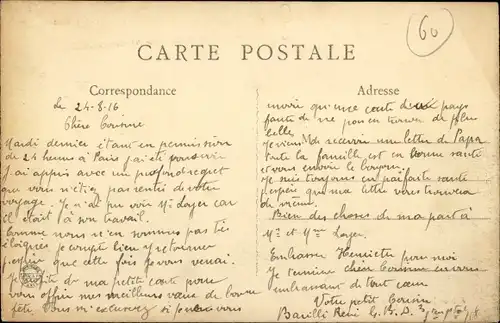 60
CARTE POSTALE
Correspondance
Adresse
le 24-8-16
Chère Cousine
Mardi dernier étant en permission
de 24 heures à Paris j'ai été pour voir
J'ai appris avec un profond regret
que vous n'étiez pas rentrés de votre
voyage. Je n'ai pu voir Mr Layer car
il était à son travail.
Comme nous n'en sommes pas très
éloignés je compte bien y retourner
j'espère que cette fois je vous verrai.
Je profite de ma petite carte pour
vous offrir mes meilleurs vœux de bonne
fête. Vous m'excuserez si je ne vous
envoie qu'une carte de pays
faute de ne pou en trouver de plus
belle
Je viens de recevoir une lettre de Papa
toute la famille est en bonne santé
et vous envoie le bonjour.
Je suis toujours en parfaite santé
j'espère que ma lettre vous trouvera
de même.
Bien des choses de ma part à
Mr et Mme Layer.
Embrasser Henriette pour moi
Je termine chère Cousine en vous
embrassant de tout cœur
Votre petit Cousin
René G. B. D.